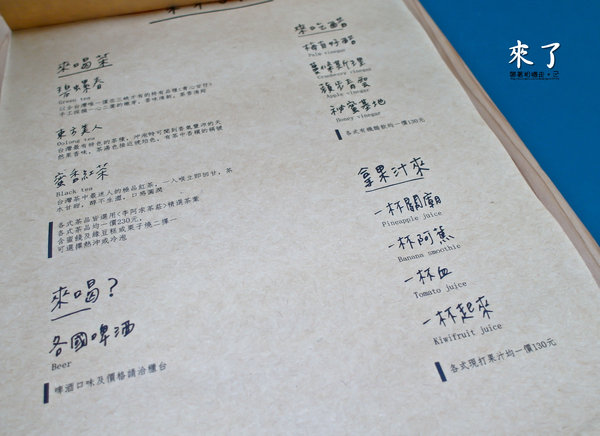 來喝茶
碧螺春
Green tea
東方美人
Oolong tea
蜜香紅茶
Black tea
各式茶品皆選用<李阿家茶莊>精選茶葉
各式茶品均一價230元,
含蜜餞及綠豆糕或栗子燒二擇一
可選擇熱沖或冷泡
來喝?
各國啤酒
Beer
啤酒口味及價格請洽櫃台
來吃醋
梅有好醋
Palm vinegar
Cranberry vinegar
蘋步青雲
Apple vinegar
祕蜜基地
Honey vinegar
各式有機醋飲均一價130元
拿果汁來
一杯關廟
Pineapple juice
一杯阿蕉
Banana smoothie
一杯血
Tomato juice
一杯起來
Kiwifruit juice
各式現打果汁均一價130元
來了